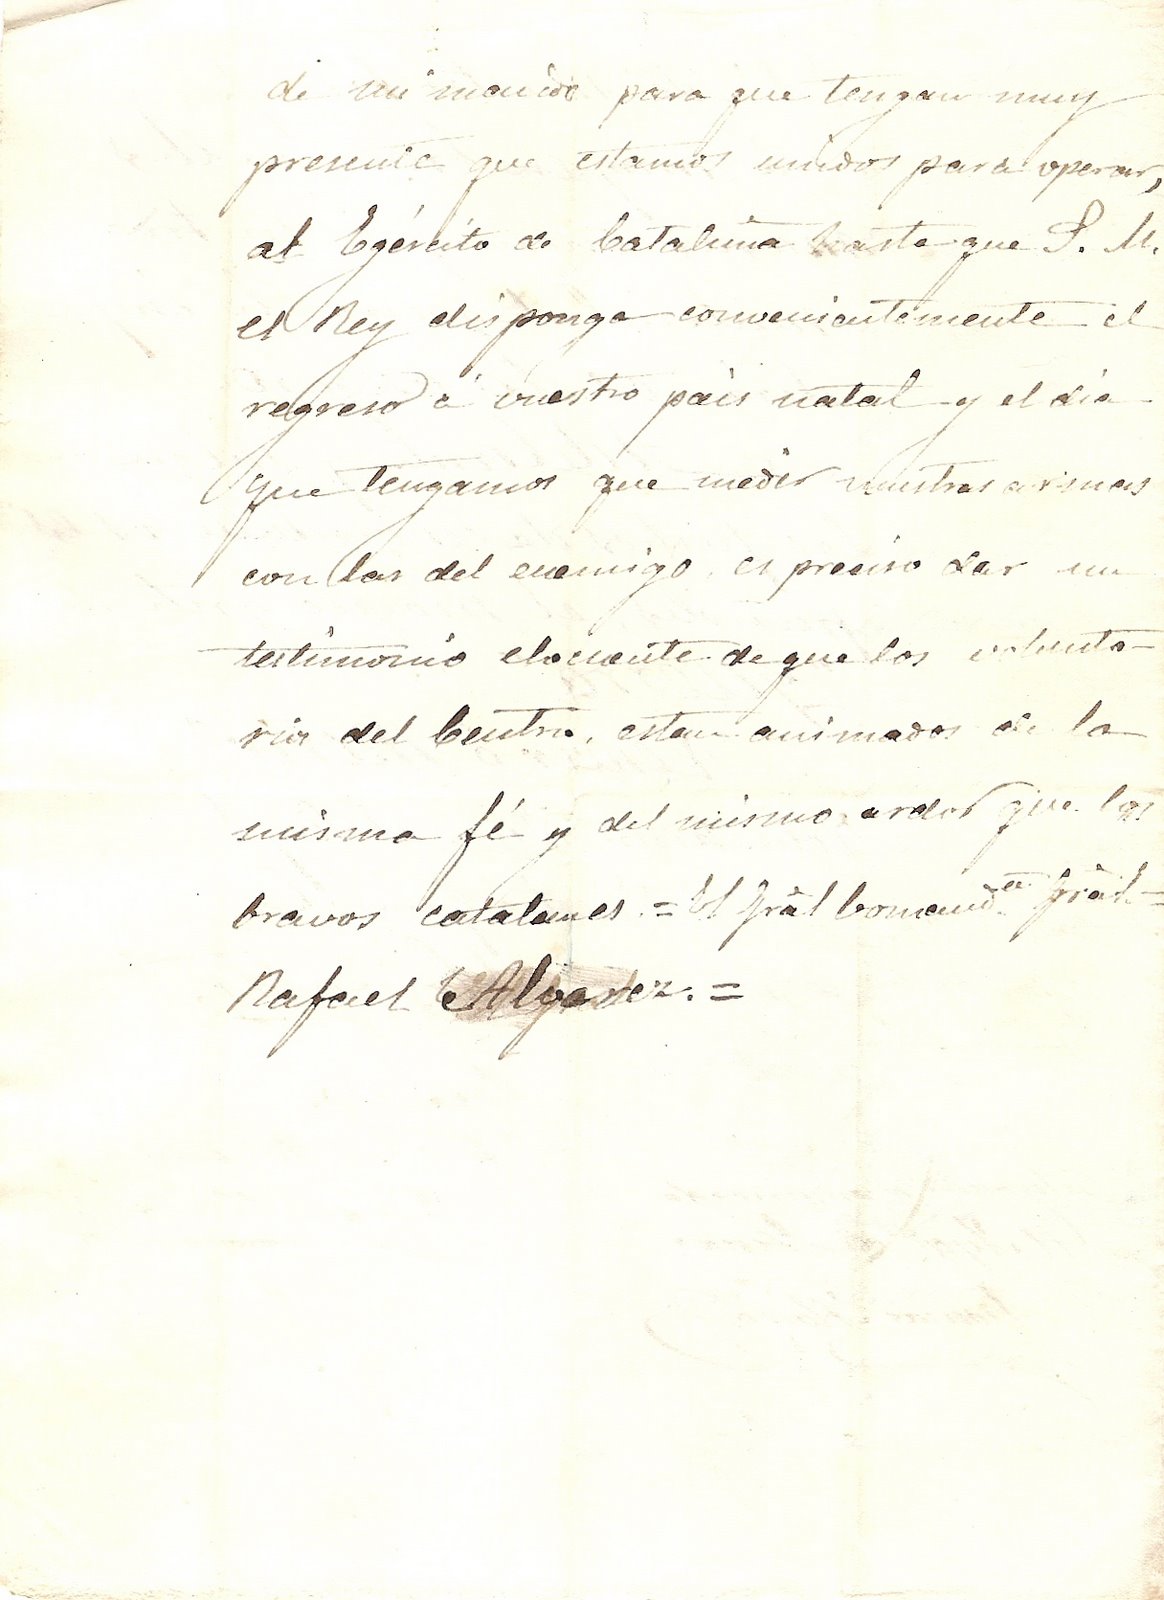 de mi mando para que tengan muy
presente que estamos unidos para operar,
al Egército de Cataluña hasta que S. M.
el Rey disponga convenientemente el
regreso á vuestro pais natal y el dia
que tengamos que medir nuestras armas
con las del enemigo, es preciso dar un
testimonio elocuente de que los volunta-
rios del Centro, estan animados de la
misma fé y del mismo ardor que los
bravos catalanes. = El Gral Comandte Gral =
Rafael Alvarez. =